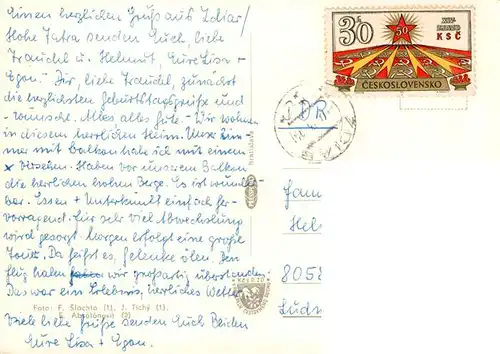 Einen herzlichen Gruß aus Zdiar/
Hohe Tatra senden Euch, liebe
Traudel u. Helmut, Eure Lisa +
Egon. Dir, liebe Traudel, zunächst
die herzlichsten Geburtstagsgrüße und
-wünsche. Alles alles Gute. Wir wohnen
in diesem herrlichen Heim. Unser Zim-
mer mit Balkon habe ich mit einem
x versehen. Haben vor unserem Balkon
die herrlichen hohen Berge. Es ist wunder
bar. Essen + Unterkunft einfach her-
vorragend. Für sehr viel Abwechslung
wird gesorgt. Morgen erfolgt eine große
Tour. Da heißt es, Gelenke ölen. Den
Flug haben wir großartig überstanden.
Das war ein Erlebnis, herrliches Wetter.
Foto: F. Šlachta (1), J. Tichý (1),
Absolonová (2)
Viele liebe Grüße senden Euch Beiden
Eure Lisa + Egon.
30
50
KSČ
ČESKOSLOVENSKO
DDR
Fam
Hel
8058